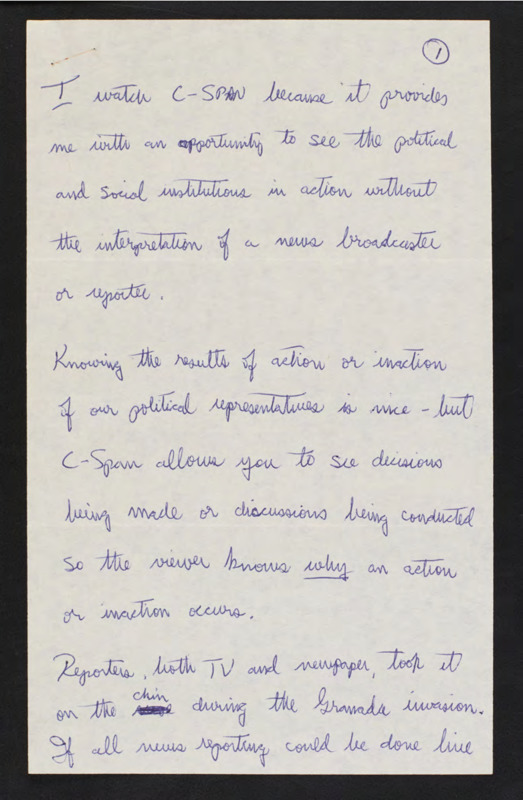 1
I watch C-SPAN because it provides
me with an opportunity to see the political
and social institutions in action without
the interpretation of a news broadcaster
or reporter.
Knowing the results of action or inaction
of our political representatives is nice - but
C-Span allows you to see decisions
being made or discussions being conducted
so the viewer knows why an action
or inaction occurs.
Reporters, both TV and newspaper, took it
on the chin during the Granada invasion.
If all news reporting could be done live